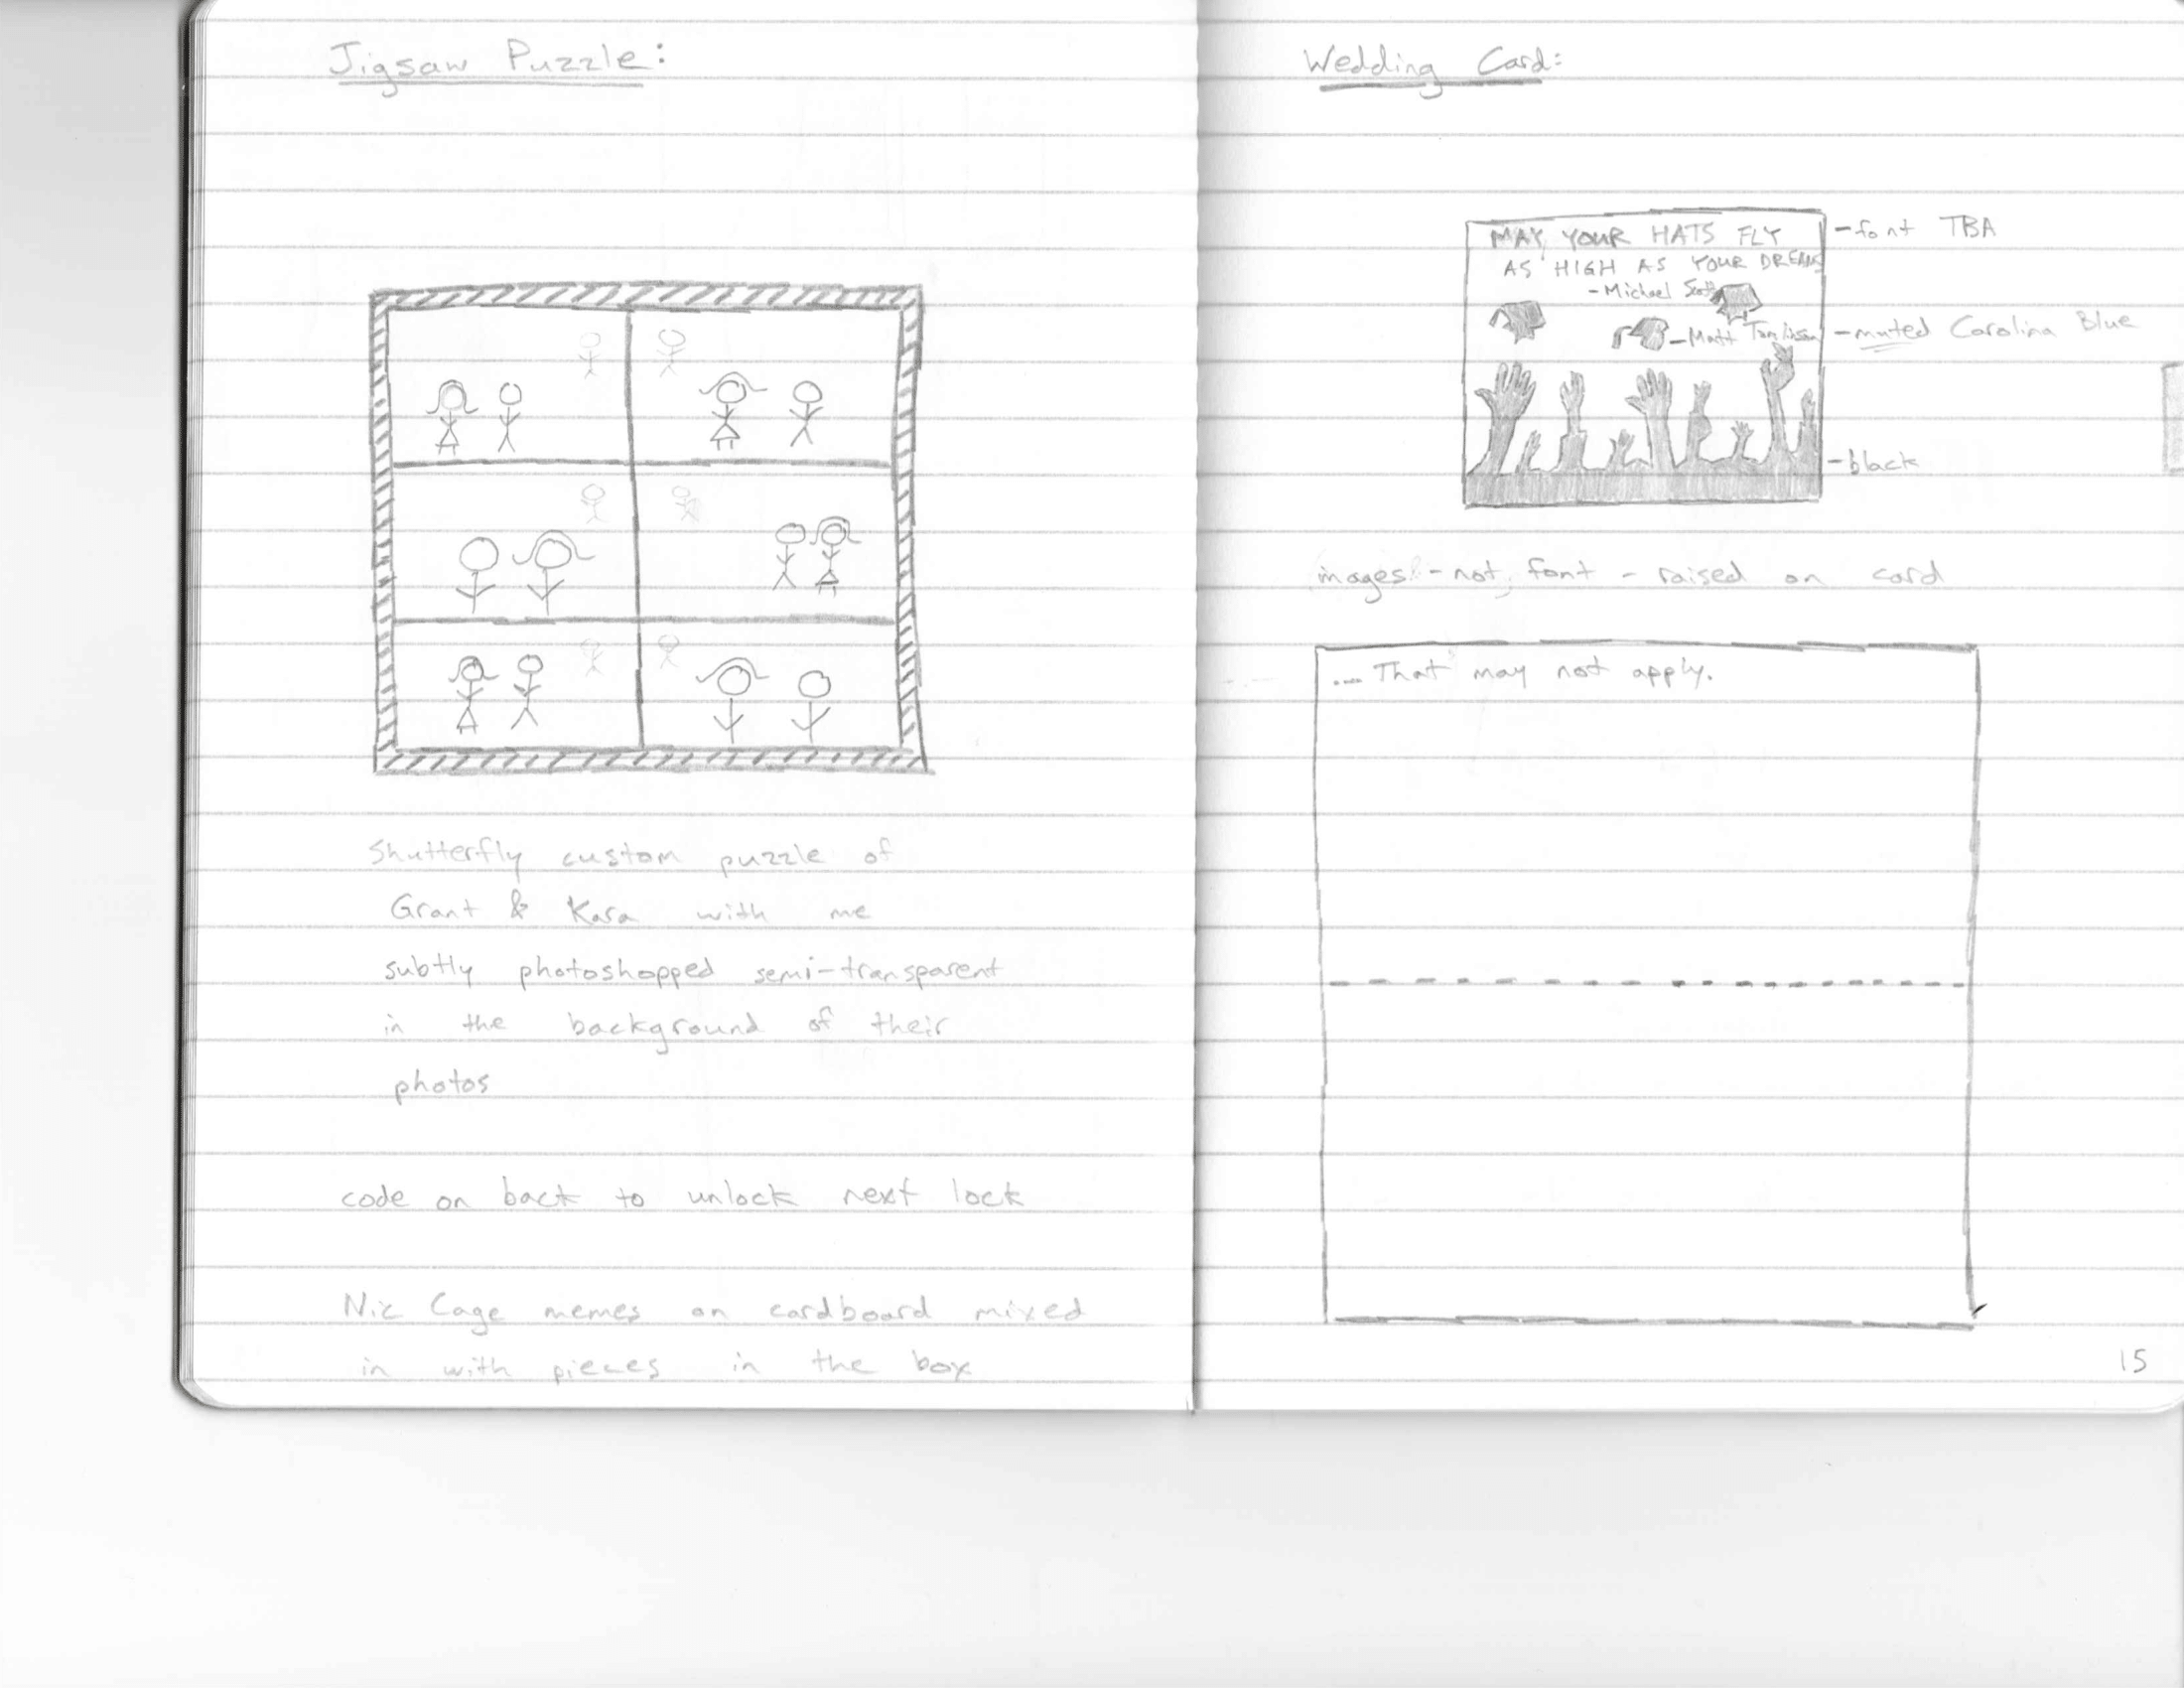 Jigsaw Puzzle:
Shutterfly custom puzzle of
Grant & Kara with me
subtly photoshopped semi-transparent
in the background of their
photos
code on back to unlock next lock
Nic Cage memes on cardboard mixed
in with pieces in the box
Wedding Card:
MAY YOUR HATS FLY
AS HIGH AS YOUR DREAMS
-Michael Scott
-Matt Tomlinson
-font TBA
-muted Carolina Blue
-black
images - not font - raised on card
... That may not apply.
15